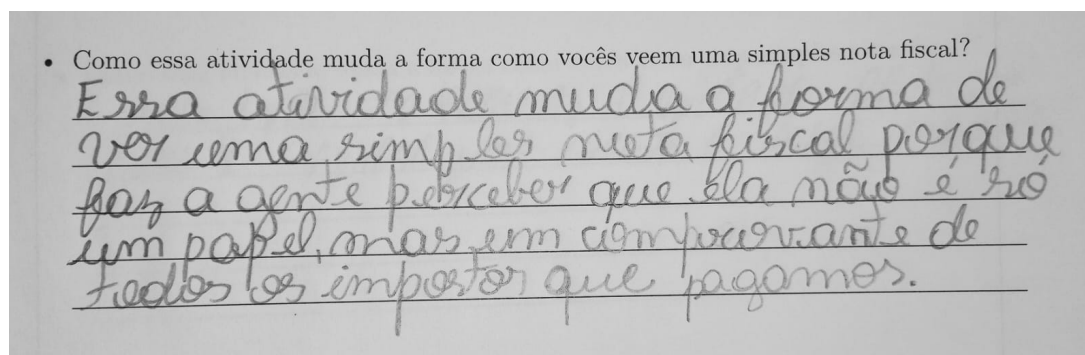 • Como essa atividade muda a forma como vocês veem uma simples nota fiscal?
Essa atividade muda a forma de
ver uma simples nota fiscal porque
faz a gente perceber que ela não é só
um papel, mas um comprovante de
todos os impostos que pagamos.